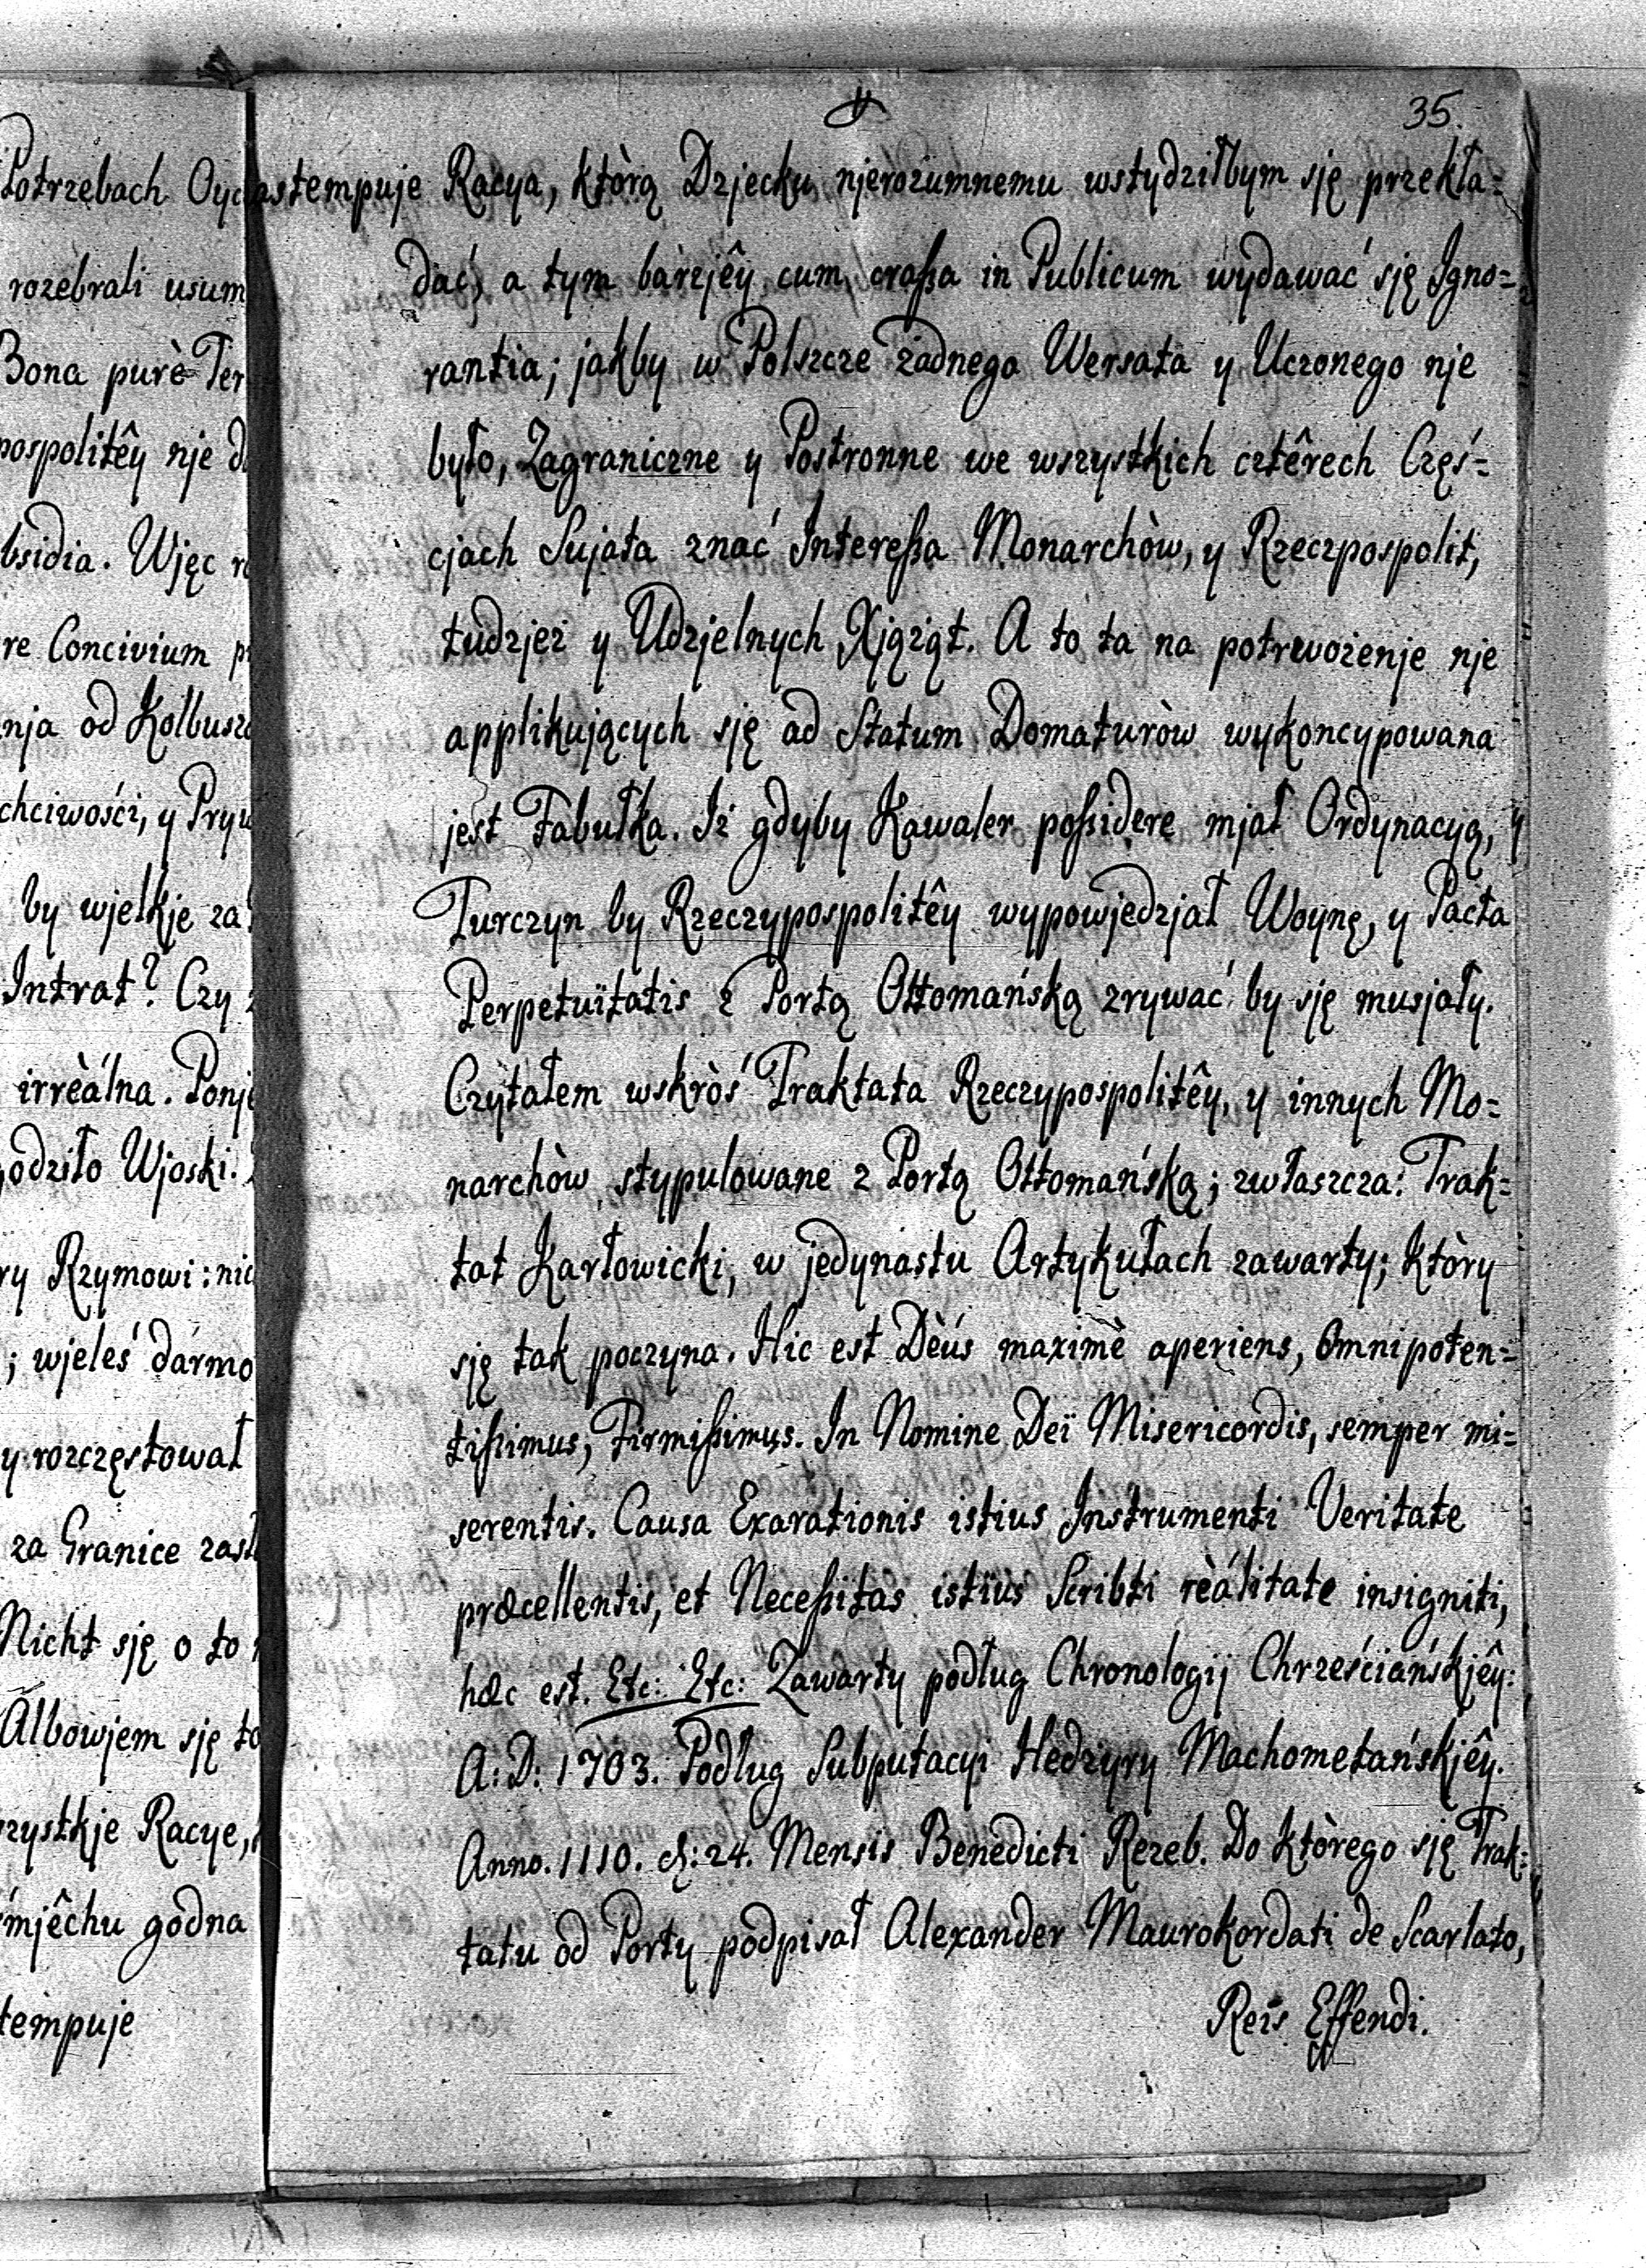 35.
Potrzebach Oyc
rozebrali usum
Bona purè Ter
pospolitêy nje d
bsidia. Wjęc r
re Concivium p
nja od Kolbusz
chciwości, y Pryw
by wjelkje za
Intrat? Czy
irrèálna. Ponje
odziło Wjoski.
ry Rzymowi: nic
; wjeleś dármo
y rozczęstował
za Granice zasł
Nicht sję o to
Albowjem sję to
zystkje Racye,
śmjêchu godna
tempuje
astempuje Racya, którą Dzjecku njerozumnemu wstydziłbym sję przekła=
dać, a tym barzjêy cum craßa in Publicum wydawać sję Igno=
rantia; jakby w Polszcze żadnego Wersata y Uczonego nje
było, Zagraniczne y Postronne we wszystkich cztêrech Częś=
cjach Sujata znać Intereßa Monarchòw, y Rzeczpospolit,
tudzjeż y Udzjelnych Xjążąt. A to ta na potrwożenje nje
applikujących sję ad Statum Domaturòw wykoncypowana
jest Fabułka. Iż gdyby Kawaler poßidere mjał Ordynacyą, y
Turczyn by Rzeczypospolitêy wypowjedzjał Woynę, y Pacta
Perpetuïtatis z Portą Ottomańską zrywać by sję musjały.
Czytałem wskròś Traktata Rzeczypospolitêy, y innych Mo=
narchòw stypulowane z Portą Ottomańską; zwłaszcza: Trak=
tat Karłowicki, w jedynastu Artykułach zawarty; który
sję tak poczyna. Hic est Dèús maximè aperiens, Omnipoten=
tißimus, Firmißimus. In Nomine Deï Misericordis, semper mi=
serentis. Causa Exarationis istius Instrumenti Veritate
præcellentis, et Neceßitas istius Scribti rèálitate insigniti,
hæc est. Etc: Etc: Zawarty podług Chronologij Chrześciańskjêy:
A: D: 1703. Podług Subputacyi Hedżyry Machometańskjêy.
Anno. 1110. d: 24. Mensis Benedicti Rezeb. Do którego sję Trak=
tatu od Porty podpisał Alexander Maurokordati de Scarlato,
Reis Effendi.